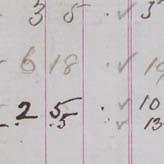 3 5 ✓ 3
6 18 ✓
2 5 ✓ 10
5 ✓ 13